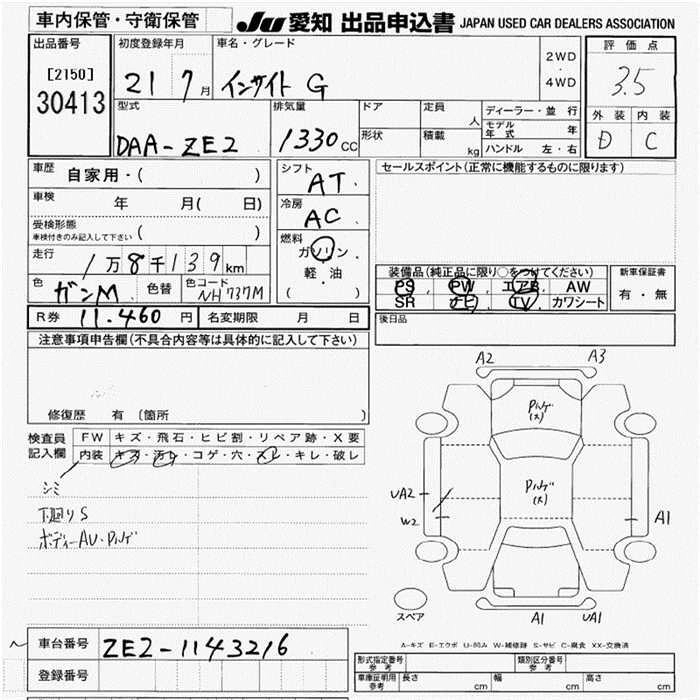 車内保管・守衛保管
JU 愛知 出品申込書 JAPAN USED CAR DEALERS ASSOCIATION
出品番号
[2150]
30413
初度登録年月
21 7月
車名・グレード
インサイト G
2WD
・
4WD
評価点
3.5
外装 内装
D C
型式
DAA-ZE2
排気量
1330 CC
ドア
形状
定員
人
積載
kg
ディーラー・並行
モデル年式 年
ハンドル 左・右
車歴 自家用・( )
車検 年 月( 日)
受検形態
車検付きのみ記入して下さい ( )
走行 1万8千139km
色 ガンM 色替 色コード NH737M
シフト
AT
冷房
AC
燃料
ガソリン
軽・油
( )
セールスポイント(正常に機能するものに限ります)
装備品(純正品に限り○をつけてください)
PS PW エアB AW
SR ナビ TV カワシート
新車保証書
有・無
R券 11.460 円 名変期限 月 日
後日品
注意事項申告欄(不具合内容等は具体的に記入して下さい)
修復歴 有 〔箇所 〕
検査員記入欄
FW キズ・飛石・ヒビ割・リペア跡・X要
内装 キズ・汚レ・コゲ・穴・スレ・キレ・破レ
シミ
下廻りS
ボディーAU・Pハゲ
A2 A3
Pハゲ
(大)
Pハゲ
(大)
UA2
W2
A1
スペア
A1 UA1
A-キズ E-エクボ U-凹み W-補修跡 S-サビ C-腐食 XX-交換済
車台番号 ZE2-1143216
登録番号
型式指定番号 参考
類別区分番号 参考
車庫証明用 参考 長さ cm 幅 cm 高さ cm